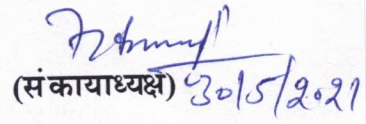 (संकायाध्यक्ष) 30/5/2021